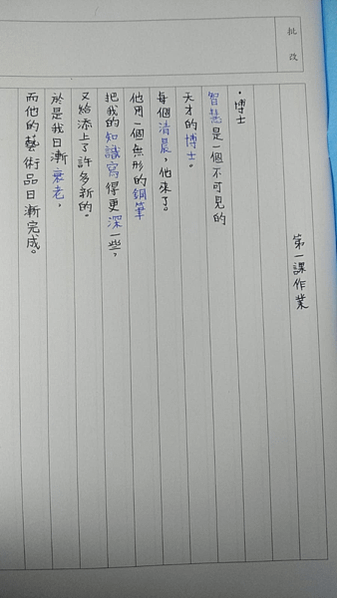 批改
第一課作業
·博士
智慧是一個不可見的
天才的博士。
每個清晨，他來了。
他用一個無形的鋼筆
把我的知識寫得更深一些，
又給添上了許多新的。
於是我日漸衰老，
而他的藝術品日漸完成。